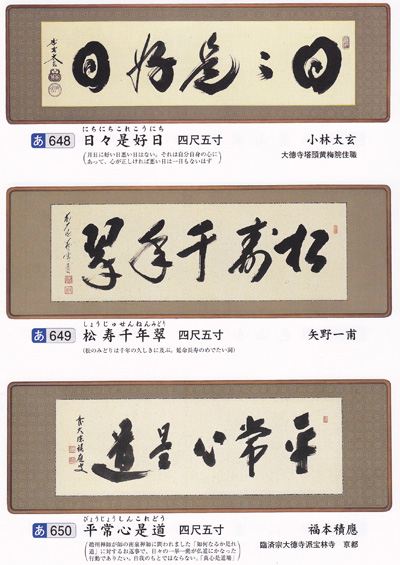 日〻是好日
にちにちこれこうにち
あ648 日々是好日 四尺五寸 小林太玄
(月日に好い日悪い日はない。それは自分自身の心に
あって、心が正しければ悪い日は一日もないはず)
大徳寺塔頭黄梅院住職
松壽千年翠
しょうじゅせんねんみどり
あ649 松寿千年翠 四尺五寸 矢野一甫
(松のみどりは千年の久しきに及ぶ。延命長寿のめでたい詞)
平常心是道
びょうじょうしんこれどう
あ650 平常心是道 四尺五寸 福本積應
趙州禅師が師の南泉禅師に問われました「如何なるか是れ
道」に対するお返事で、日々の一挙一動が仏道にかなった
行動でありたい。自我のもとではならない。「真心是道場」
臨済宗大徳寺派宝林寺 京都